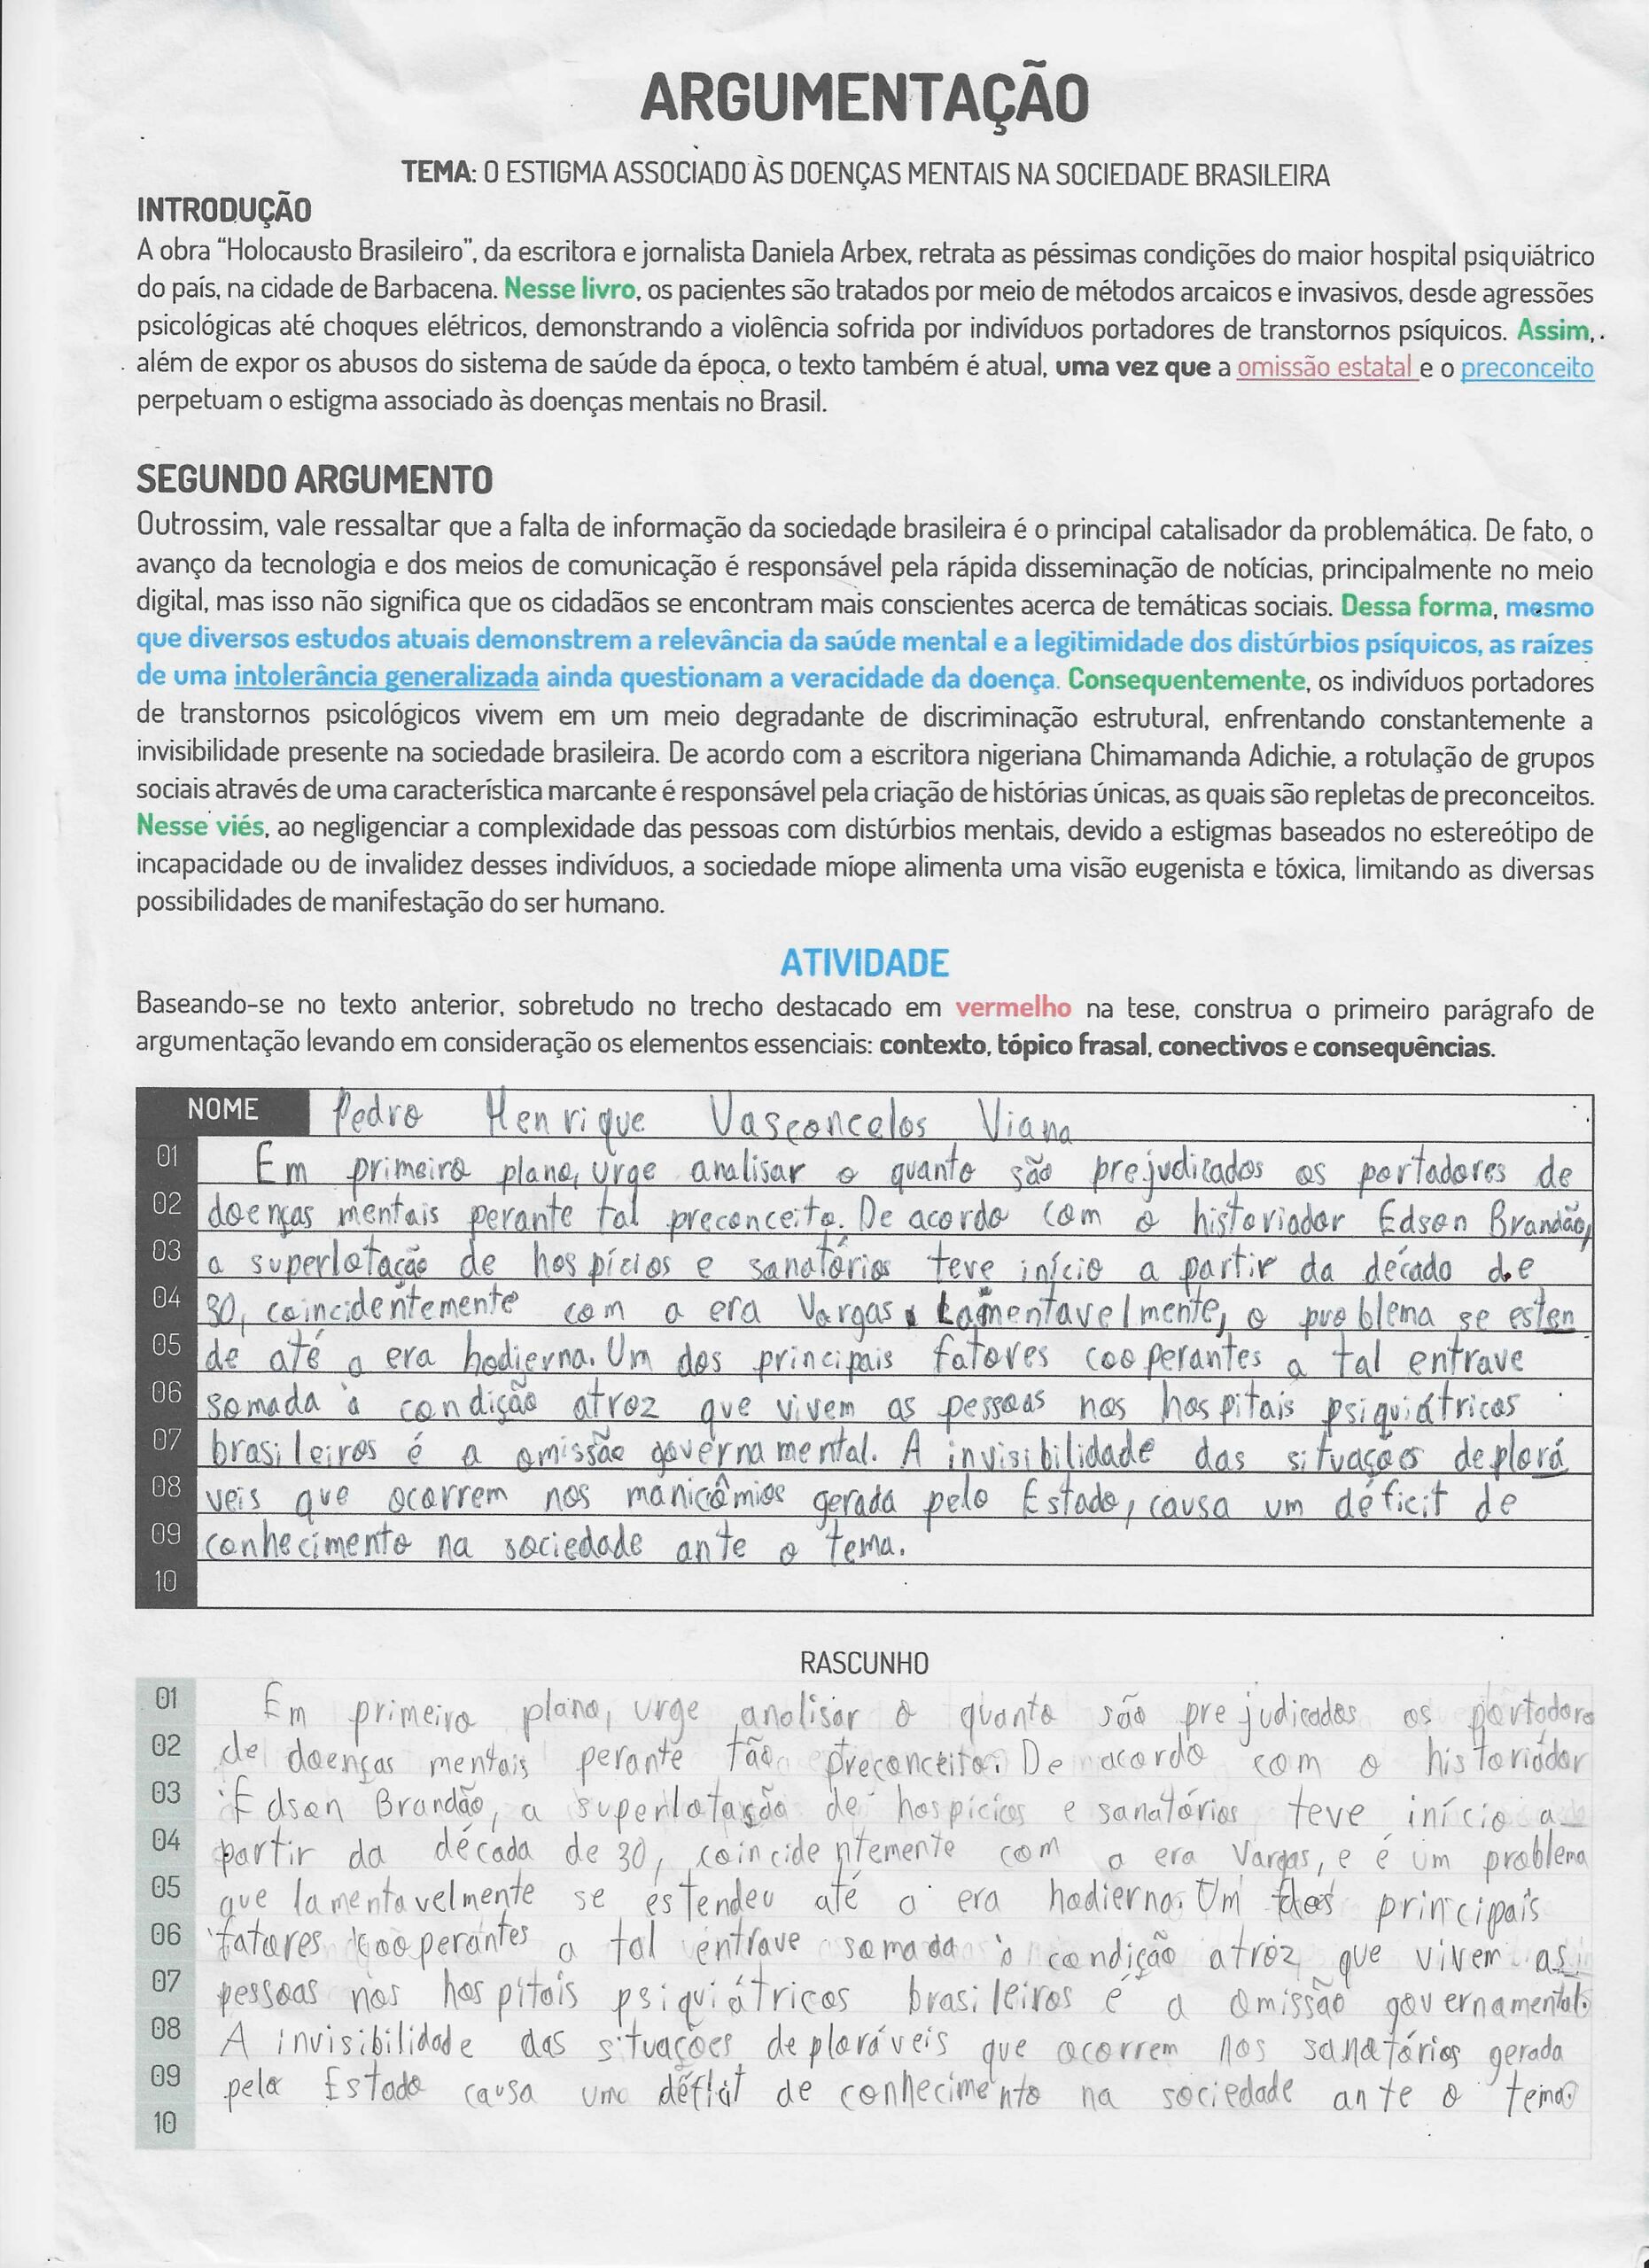 ARGUMENTAÇÃO
TEMA: O ESTIGMA ASSOCIADO ÀS DOENÇAS MENTAIS NA SOCIEDADE BRASILEIRA
INTRODUÇÃO
A obra “Holocausto Brasileiro”, da escritora e jornalista Daniela Arbex, retrata as péssimas condições do maior hospital psiquiátrico
do país, na cidade de Barbacena. Nesse livro, os pacientes são tratados por meio de métodos arcaicos e invasivos, desde agressões
psicológicas até choques elétricos, demonstrando a violência sofrida por indivíduos portadores de transtornos psíquicos. Assim,
além de expor os abusos do sistema de saúde da época, o texto também é atual, uma vez que a omissão estatal e o preconceito
perpetuam o estigma associado às doenças mentais no Brasil.
SEGUNDO ARGUMENTO
Outrossim, vale ressaltar que a falta de informação da sociedade brasileira é o principal catalisador da problemática. De fato, o
avanço da tecnologia e dos meios de comunicação é responsável pela rápida disseminação de notícias, principalmente no meio
digital, mas isso não significa que os cidadãos se encontram mais conscientes acerca de temáticas sociais. Dessa forma, mesmo
que diversos estudos atuais demonstrem a relevância da saúde mental e a legitimidade dos distúrbios psíquicos, as raízes
de uma intolerância generalizada ainda questionam a veracidade da doença. Consequentemente, os indivíduos portadores
de transtornos psicológicos vivem em um meio degradante de discriminação estrutural, enfrentando constantemente a
invisibilidade presente na sociedade brasileira. De acordo com a escritora nigeriana Chimamanda Adichie, a rotulação de grupos
sociais através de uma característica marcante é responsável pela criação de histórias únicas, as quais são repletas de preconceitos.
Nesse viés, ao negligenciar a complexidade das pessoas com distúrbios mentais, devido a estigmas baseados no estereótipo de
incapacidade ou de invalidez desses indivíduos, a sociedade míope alimenta uma visão eugenista e tóxica, limitando as diversas
possibilidades de manifestação do ser humano.
ATIVIDADE
Baseando-se no texto anterior, sobretudo no trecho destacado em vermelho na tese, construa o primeiro parágrafo de
argumentação levando em consideração os elementos essenciais: contexto, tópico frasal, conectivos e consequências.
NOME Pedro Henrique Vasconcelos Viana
01 Em primeiro plano, urge analisar o quanto são prejudicados os portadores de
02 doenças mentais perante tal preconceito. De acordo com o historiador Edson Brandão,
03 a superlotação de hospícios e sanatórios teve início a partir da década de
04 30, coincidentemente com a era Vargas. Lamentavelmente, o problema se esten
05 de até a era hodierna. Um dos principais fatores cooperantes a tal entrave
06 somada à condição atroz que vivem as pessoas nos hospitais psiquiátricos
07 brasileiros é a omissão governamental. A invisibilidade das situações deplorá
08 veis que ocorrem nos manicômios gerada pelo Estado, causa um déficit de
09 conhecimento na sociedade ante o tema.
10
RASCUNHO
01 Em primeiro plano, urge analisar o quanto são prejudicados os portadores
02 de doenças mentais perante tão preconceito. De acordo com o historiador
03 Edson Brandão, a superlotação de hospícios e sanatórios teve início a
04 partir da década de 30, coincidentemente com a era Vargas, e é um problema
05 que lamentavelmente se estendeu até a era hodierna. Um dos principais
06 fatores cooperantes a tal entrave somada à condição atroz que vivem as
07 pessoas nos hospitais psiquiátricos brasileiros é a omissão governamental.
08 A invisibilidade das situações deploráveis que ocorrem nos sanatórios gerada
09 pelo Estado causa um déficit de conhecimento na sociedade ante o tema.
10